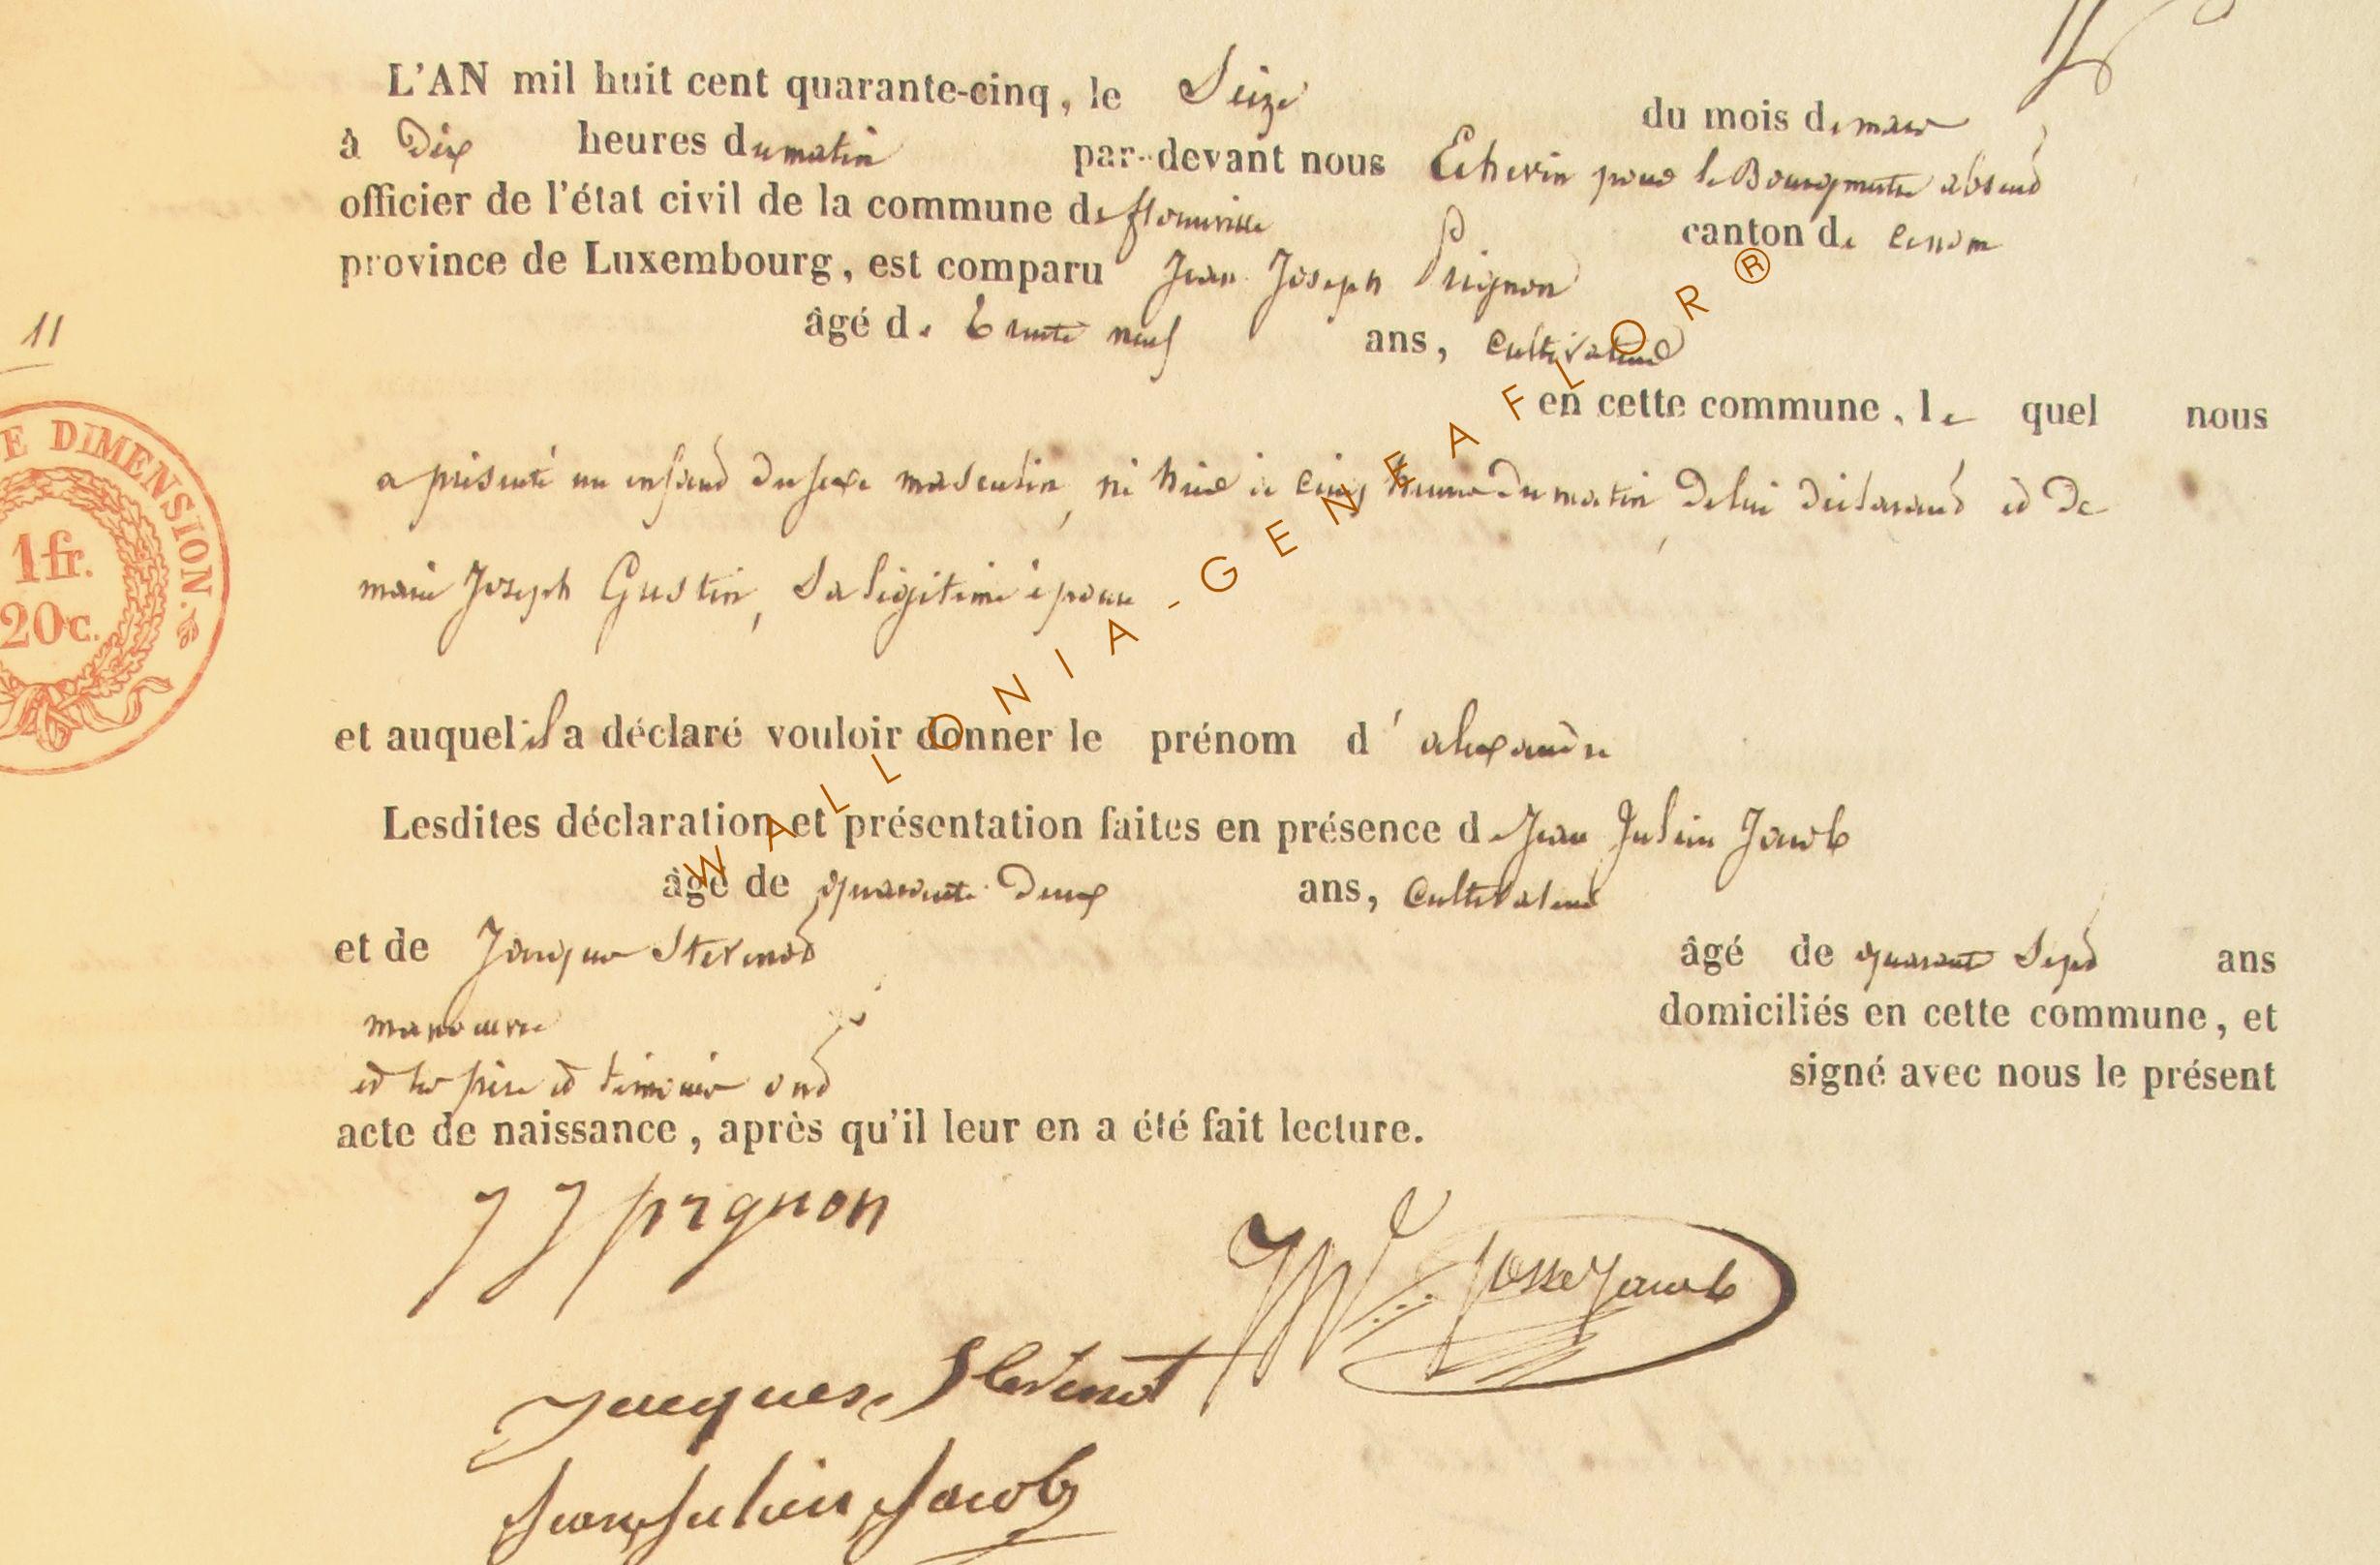 L'AN mil huit cent quarante-cinq, le Seize du mois de mars
à Dix heures du matin par-devant nous Echevin pour le Bourgmestre absent
officier de l'état civil de la commune de florenville canton de idem
province de Luxembourg, est comparu Jean Joseph Pignon
âgé de trente neuf ans, cultivateur
en cette commune, le quel nous
11
a présenté un enfant du sexe masculin, né hier à cinq heures du matin, de lui déclarant et de
marie Joseph Gustin, sa légitime épouse
E DIMENSION.
1fr.
20c.
et auquel il a déclaré vouloir donner le prénom d'alexandre
Lesdites déclaration et présentation faites en présence de Jean Julien Jacob
âgé de quarante deux ans, cultivateur
et de Jacques Stevenot âgé de quarante Sept ans
manoeuvre domiciliés en cette commune, et
et les père et témoins ont signé avec nous le présent
acte de naissance, après qu'il leur en a été fait lecture.
J J pignon
Josse Jacob
Jacques Stevenot
Jean Julien Jacob
WALLONIA-GENEAFLOR®